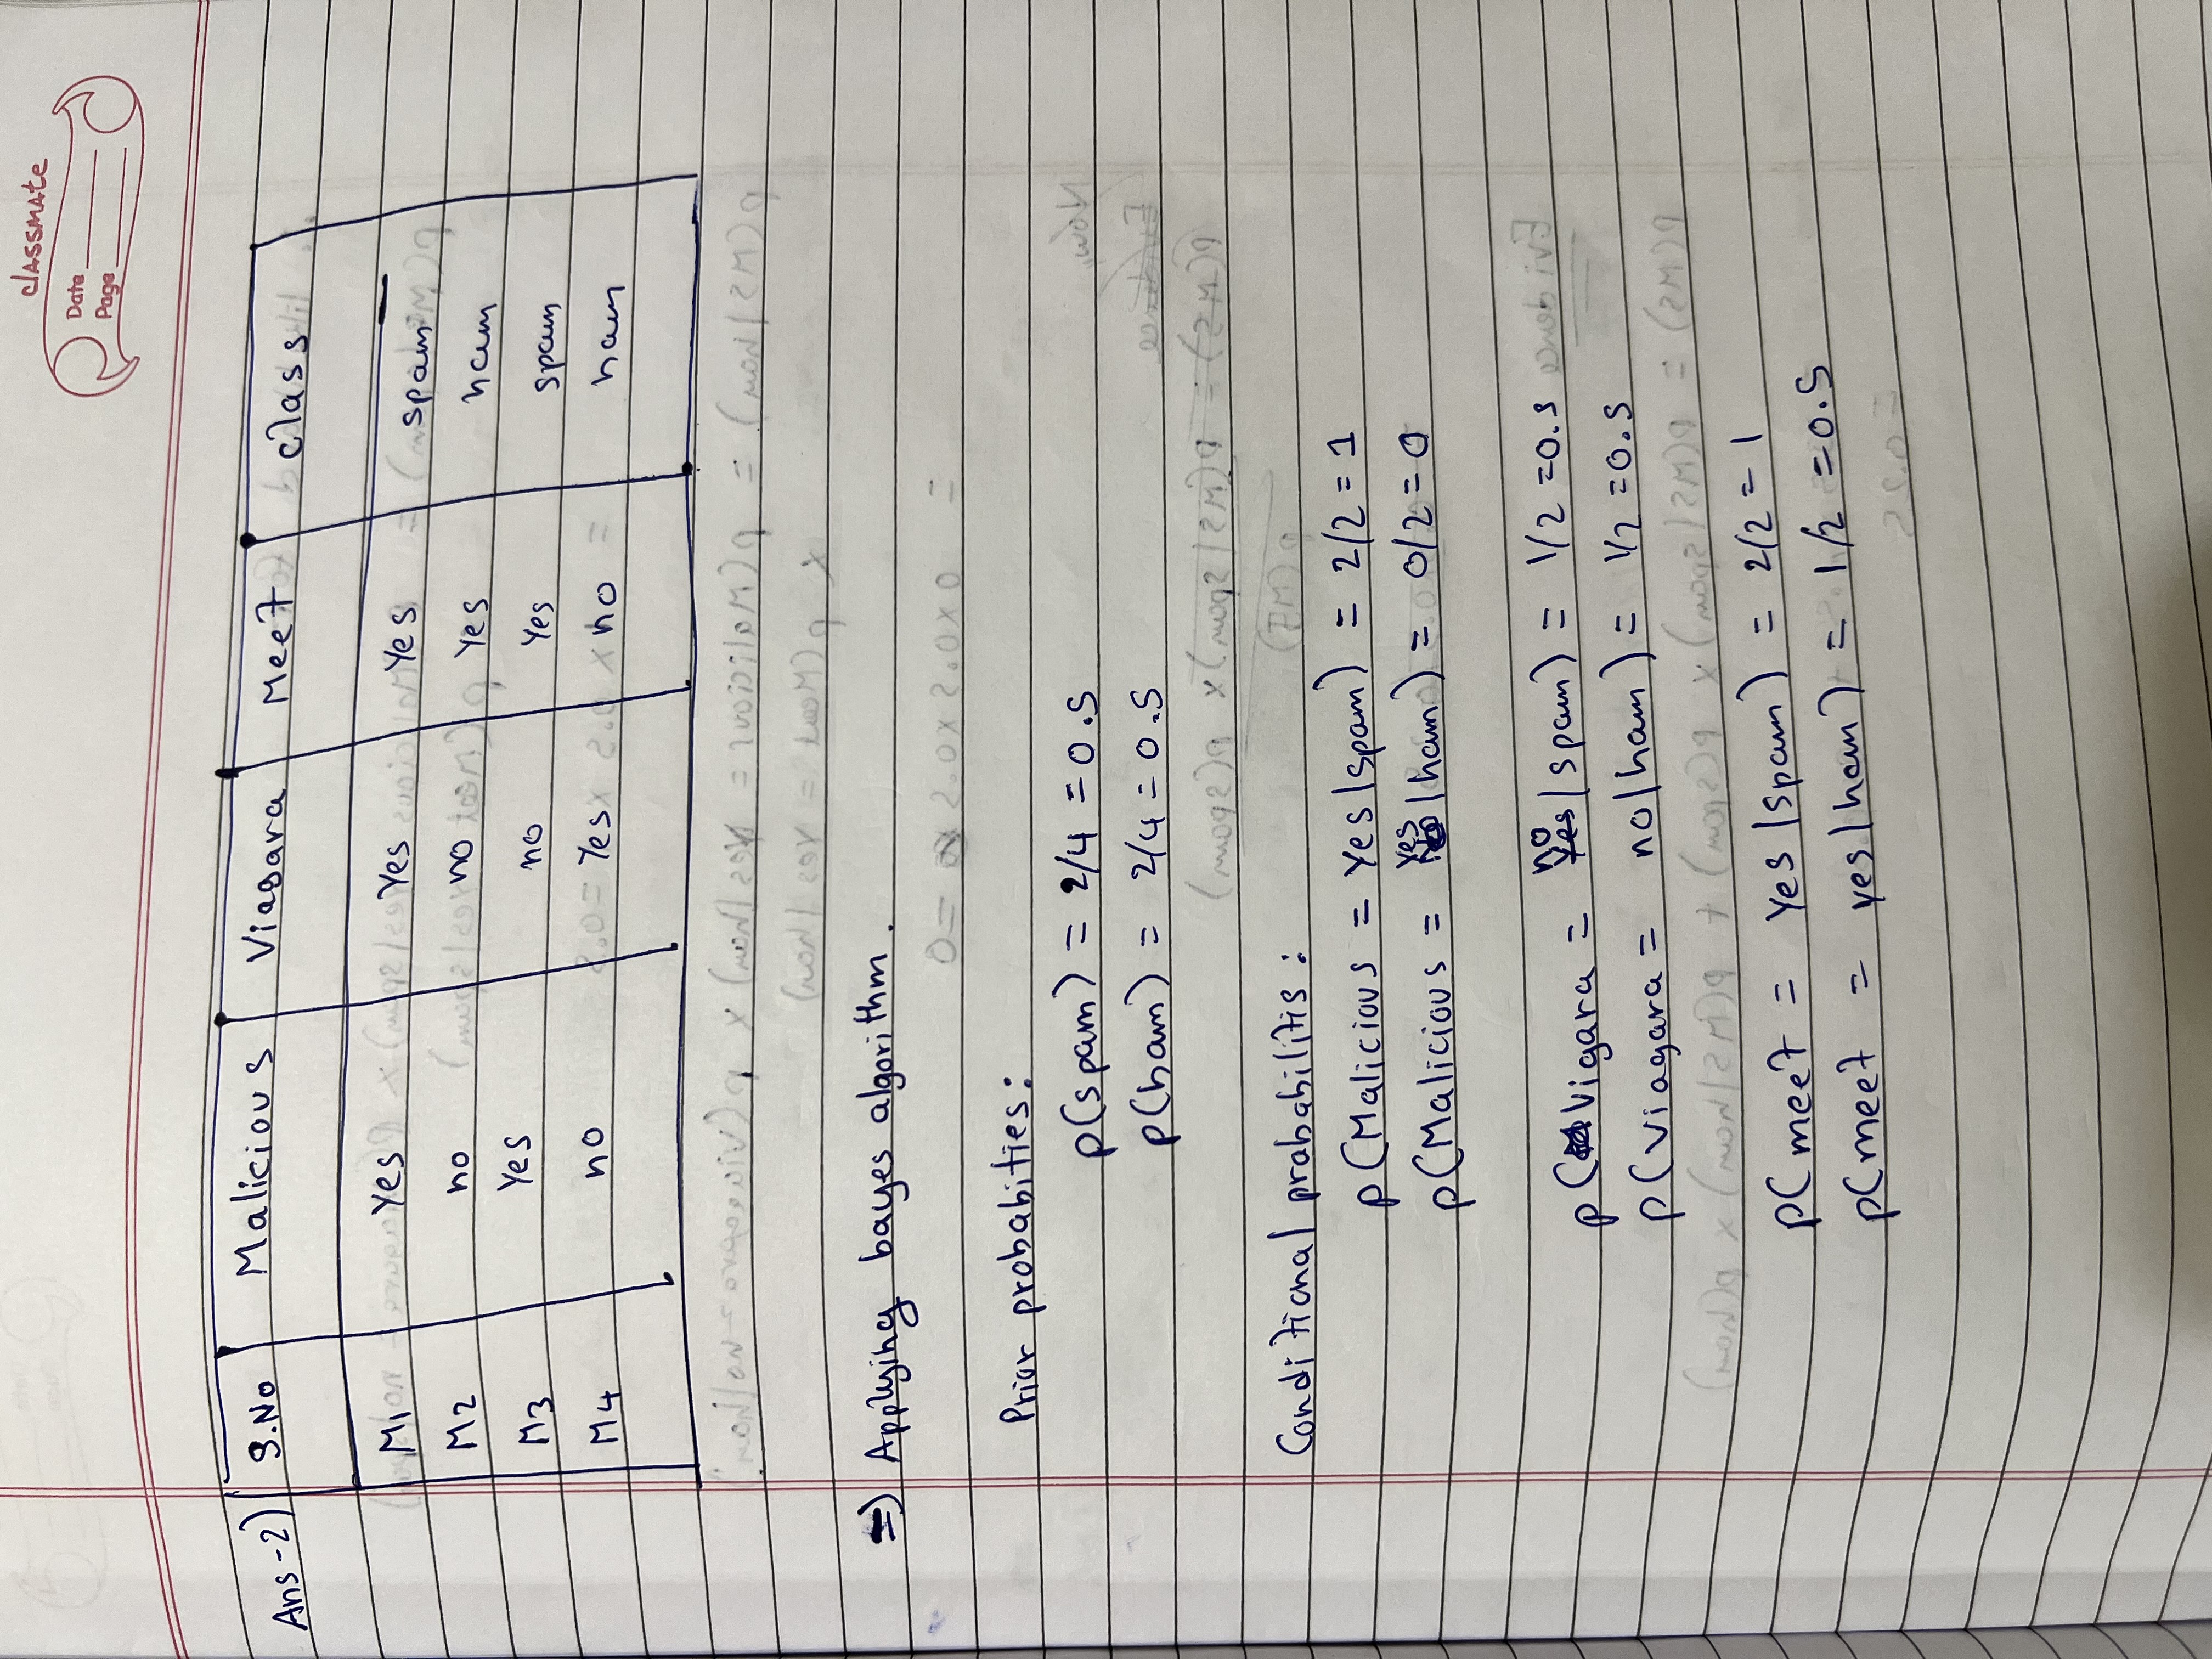 classmate
Date
Page
Ans-2)
S.No Malicious Viagara Meet class
M1 Yes Yes Yes spam
M2 no no Yes ham
M3 Yes no Yes spam
M4 no Yes no ham
=) Applying bayes algorithm.
Prior probabities:
p(spam) = 2/4 = 0.5
p(ham) = 2/4 = 0.5
Conditional probabilitis:
p(Malicious = Yes|spam) = 2/2 = 1
p(Malicious = yes|ham) = 0/2 = 0
p(Vigara = no|spam) = 1/2 = 0.5
p(Viagara = no|ham) = 1/2 = 0.5
p(meet = Yes|spam) = 2/2 = 1
p(meet = yes|ham) = 1/2 = 0.5